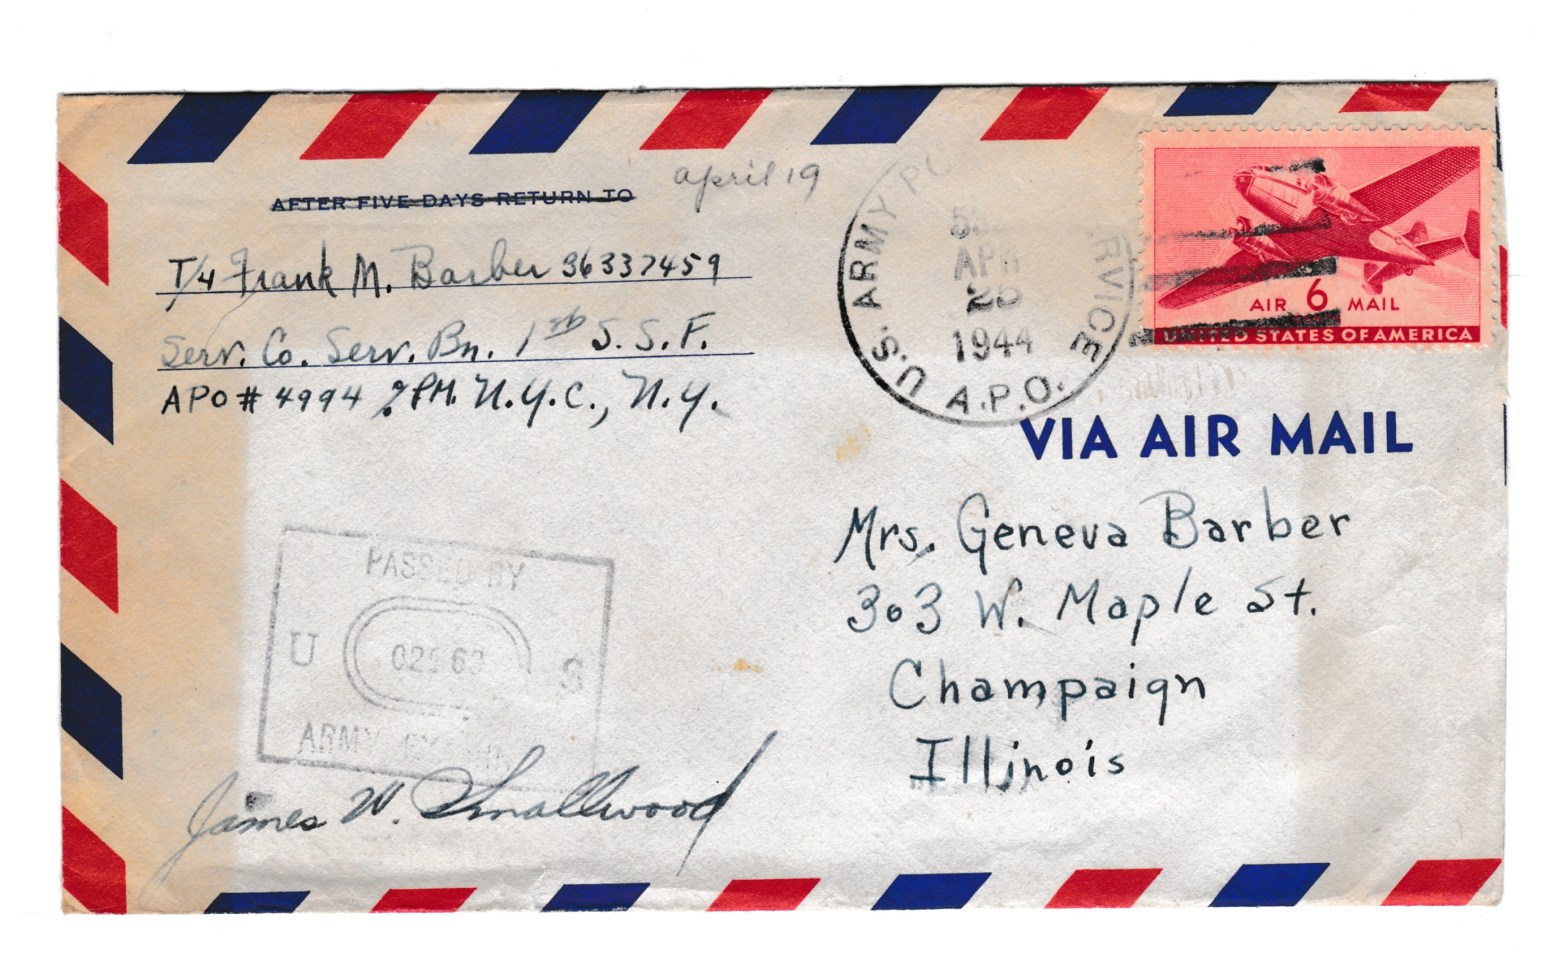 AFTER FIVE DAYS RETURN TO
april 19
T/4 Frank M. Barber 36337459
Serv. Co. Serv. Bn. 1st S. S. F.
APO # 4994 % PM. N.Y.C., N.Y.
U.S. ARMY
A.P.O.
APR
25
1944
AIR 6 MAIL
UNITED STATES OF AMERICA
VIA AIR MAIL
Mrs. Geneva Barber
303 W. Maple St.
Champaign
Illinois
PASSED BY
U S
ARMY
James W. Smallwood